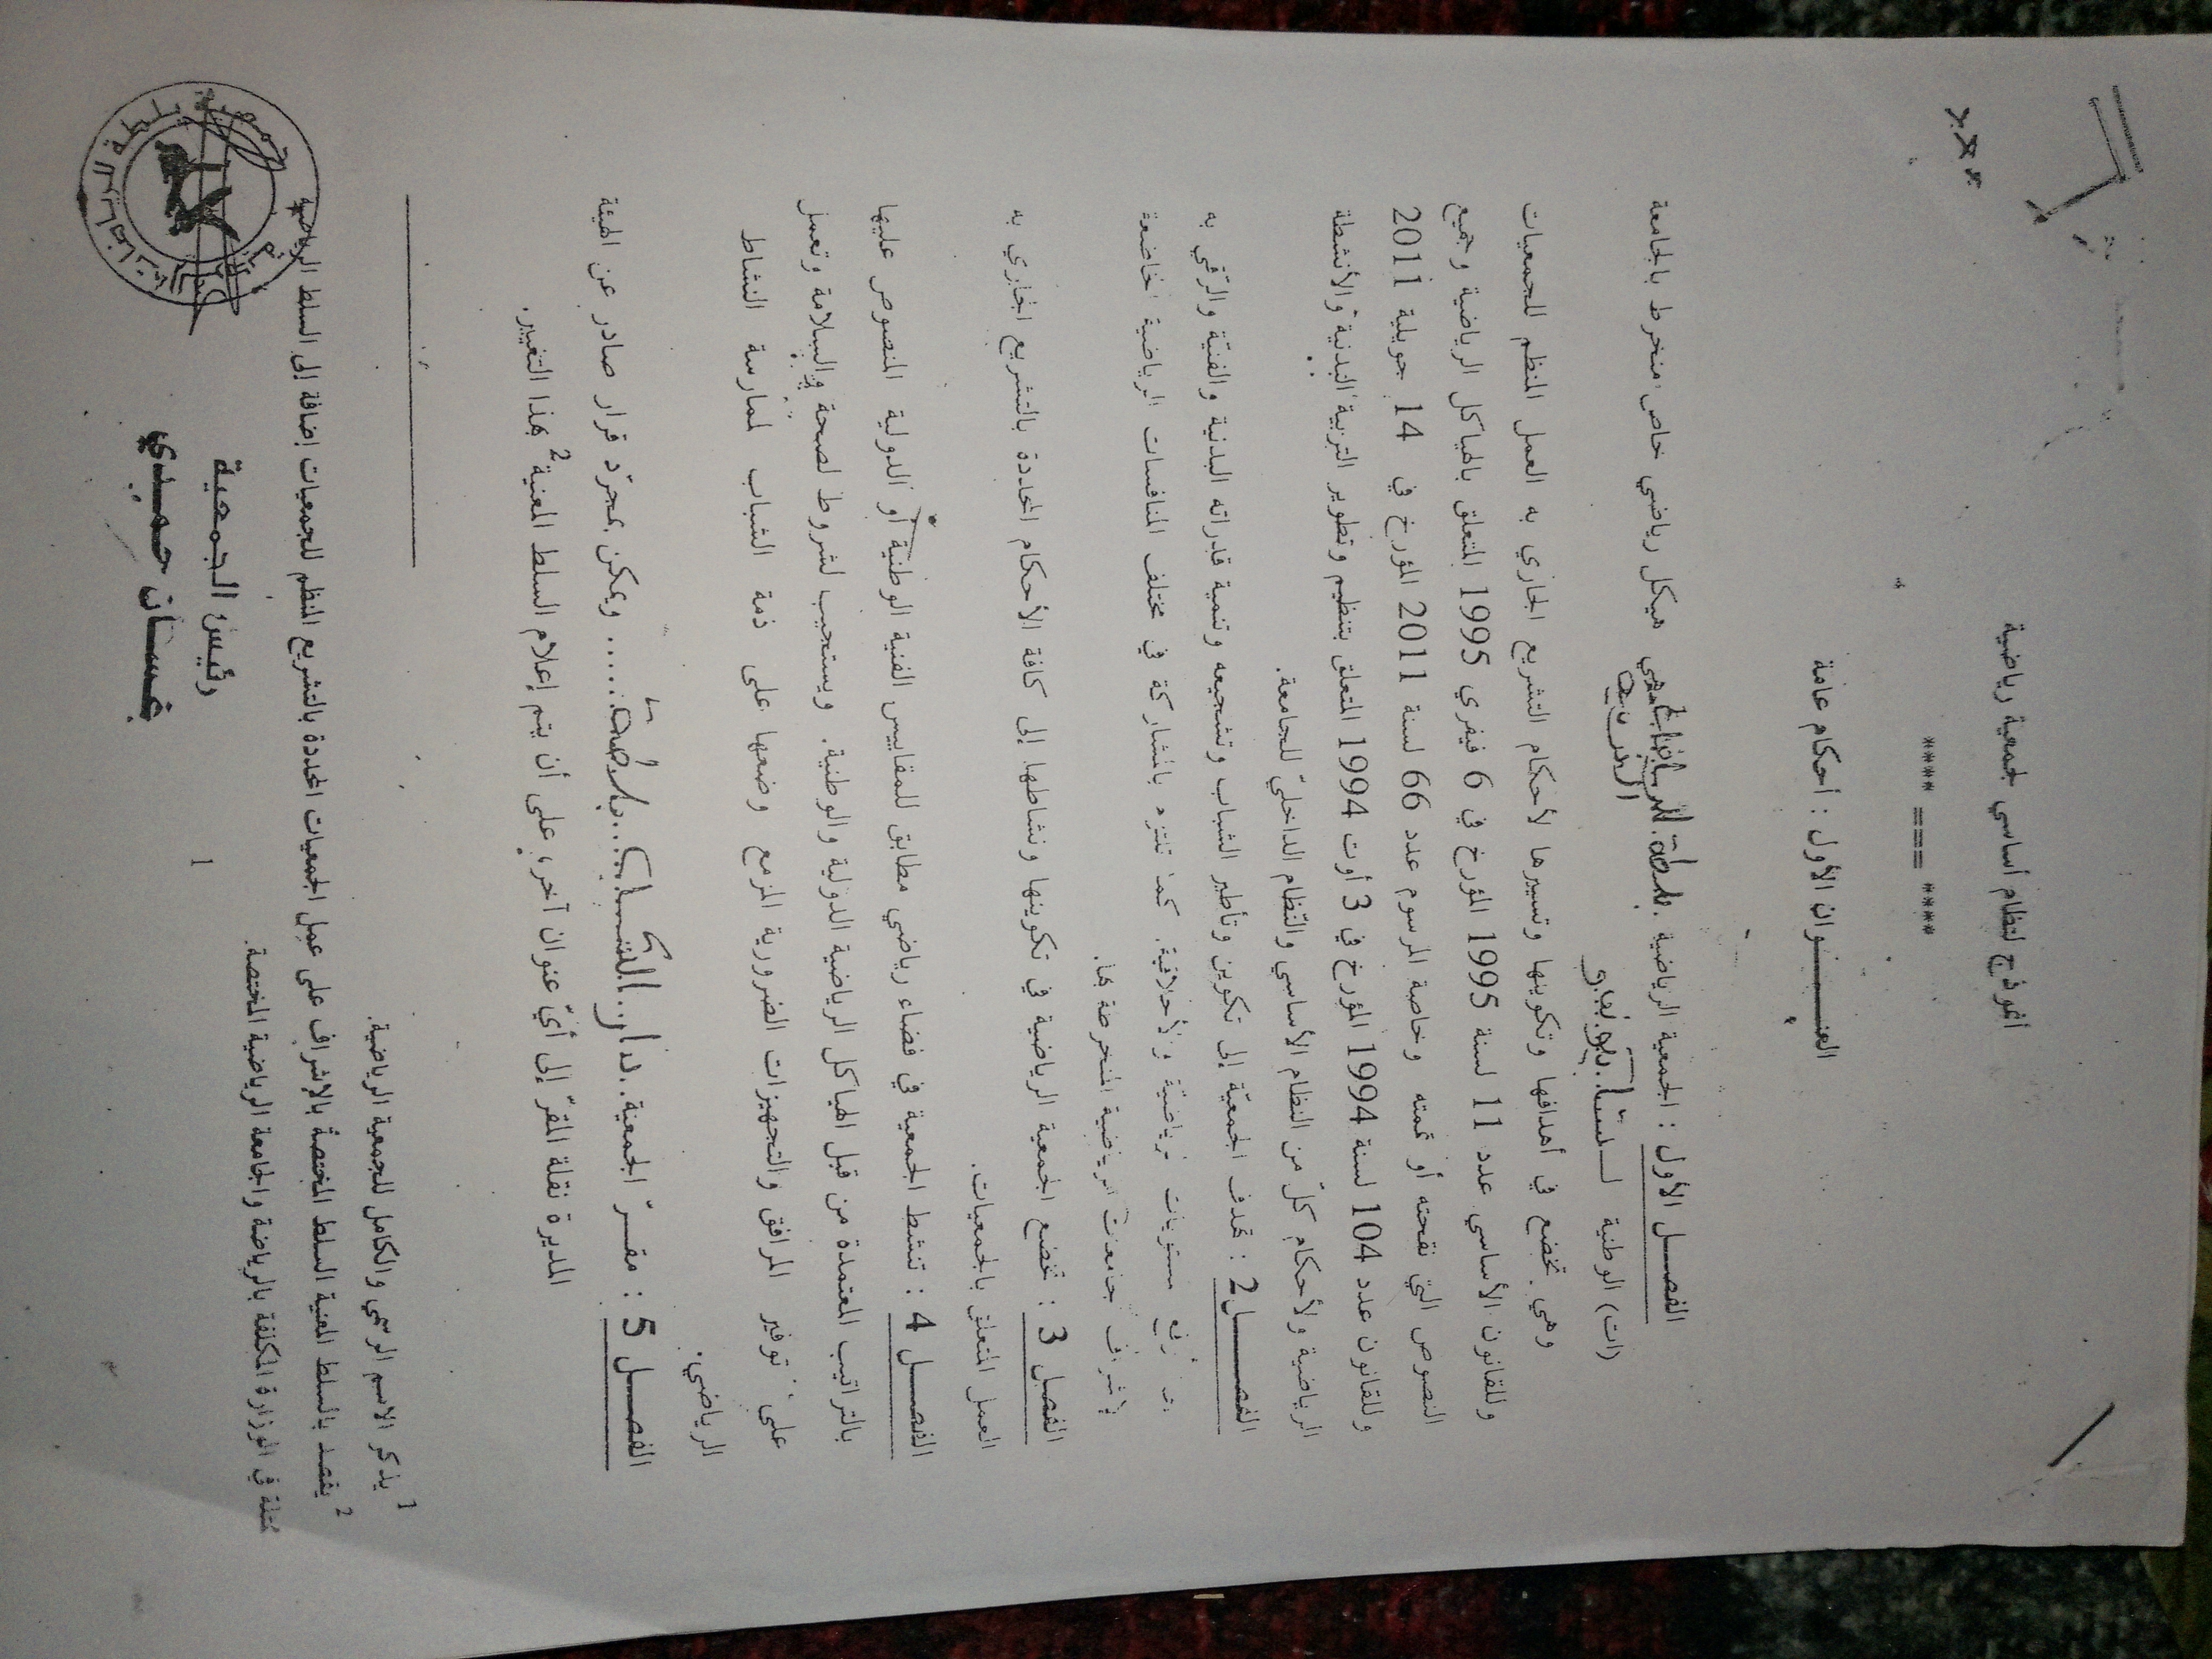 أنموذج لنظام أساسي لجمعية رياضية
**** === ****
العنـــــوان الأول : أحكام عامة
الفصـــل الأول : الجمعية الرياضية .بلطة. هي هيكل رياضي خاص منخرط بالجامعة
(ات) الوطنية
وهي تخضع في أهدافها وتكوينها وتسييرها لأحكام التشريع الجاري به العمل المنظم للجمعيات
وللقانون الأساسي عدد 11 لسنة 1995 المؤرخ في 6 فيفري 1995 المتعلق بالهياكل الرياضية وجميع
النصوص التي نقحته أو تممته وخاصة المرسوم عدد 66 لسنة 2011 المؤرخ في 14 جويلية 2011
وللقانون عدد 104 لسنة 1994 المؤرخ في 3 أوت 1994 المتعلق بتنظيم وتطوير التربية البدنية والأنشطة
الرياضية ولأحكام كلّ من النظام الأساسي والنّظام الداخليّ للجامعة.
الفصـــل2 : تهدف الجمعيّة إلى تكوين وتأطير الشباب وتشجيعه وتنمية قدراته البدنية والفنيّة والرّقي به
إلى أرفع مستويات رياضيّة والأخلاقية. كما تلتزم بالمشاركة في مختلف المنافسات الرياضية الخاضعة
لإشراف جامعات الرياضية المنخرطة بها.
الفصل 3 : تخضع الجمعية الرياضية في تكوينها ونشاطها إلى كافة الأحكام المحددة بالتشريع الجاري به
العمل المتعلق بالجمعيات.
الفصـــل 4 : تنشط الجمعية في فضاء رياضي مطابق للمقاييس الفنية الوطنية أو الدولية المنصوص عليها
بالتراتيب المعتمدة من قبل الهياكل الرياضية الدولية والوطنية. ويستجيب لشروط لصحة والسلامة وتعمل
على توفير المرافق والتجهيزات الضرورية المزمع وضعها على ذمة الشباب لممارسة النشاط
الرياضي.
الفصـــل 5 : مقـــرّ الجمعية..دار..الشباب...بلطة..... ويمكن بمجرّد قرار صادر عن الهيئة
المديرة نقلة المقرّ إلى أيّ عنوان آخر، على أن يتم إعلام السلط المعنية2 بهذا التغيير.
1 يذكر الاسم الرسمي والكامل للجمعية الرياضية.
2 يقصد بالسلط المعنية السلط المختصة بالإشراف على عمل الجمعيات المحددة بالتشريع المنظم للجمعيات إضافة إلى السلط الرياضية
ممثلة في الوزارة المكلفة بالرياضة والجامعة الرياضية المختصة.
1
رئيس الجمعية
غسـان حميدي